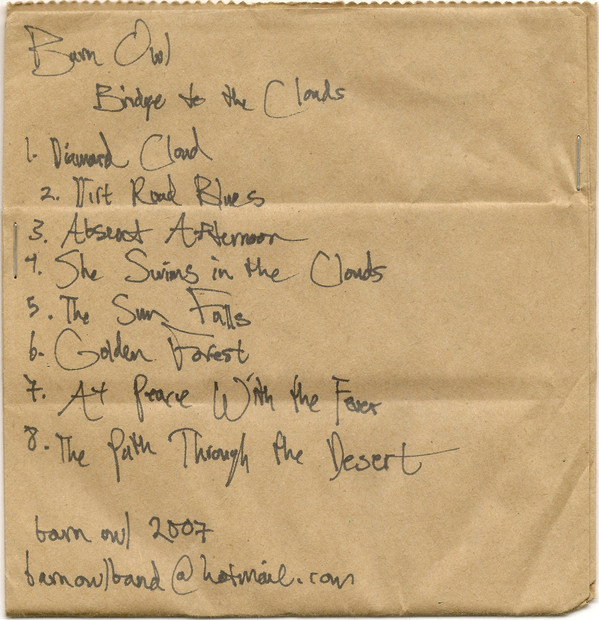 Barn Owl
Bridge to the Clouds
1. Diamond Cloud
2. Dirt Road Blues
3. Absent Afternoon
4. She Swims in the Clouds
5. The Sun Falls
6. Golden Forest
7. At Peace With the Fever
8. The Path Through the Desert
barn owl 2007
barnowlband@hotmail.com